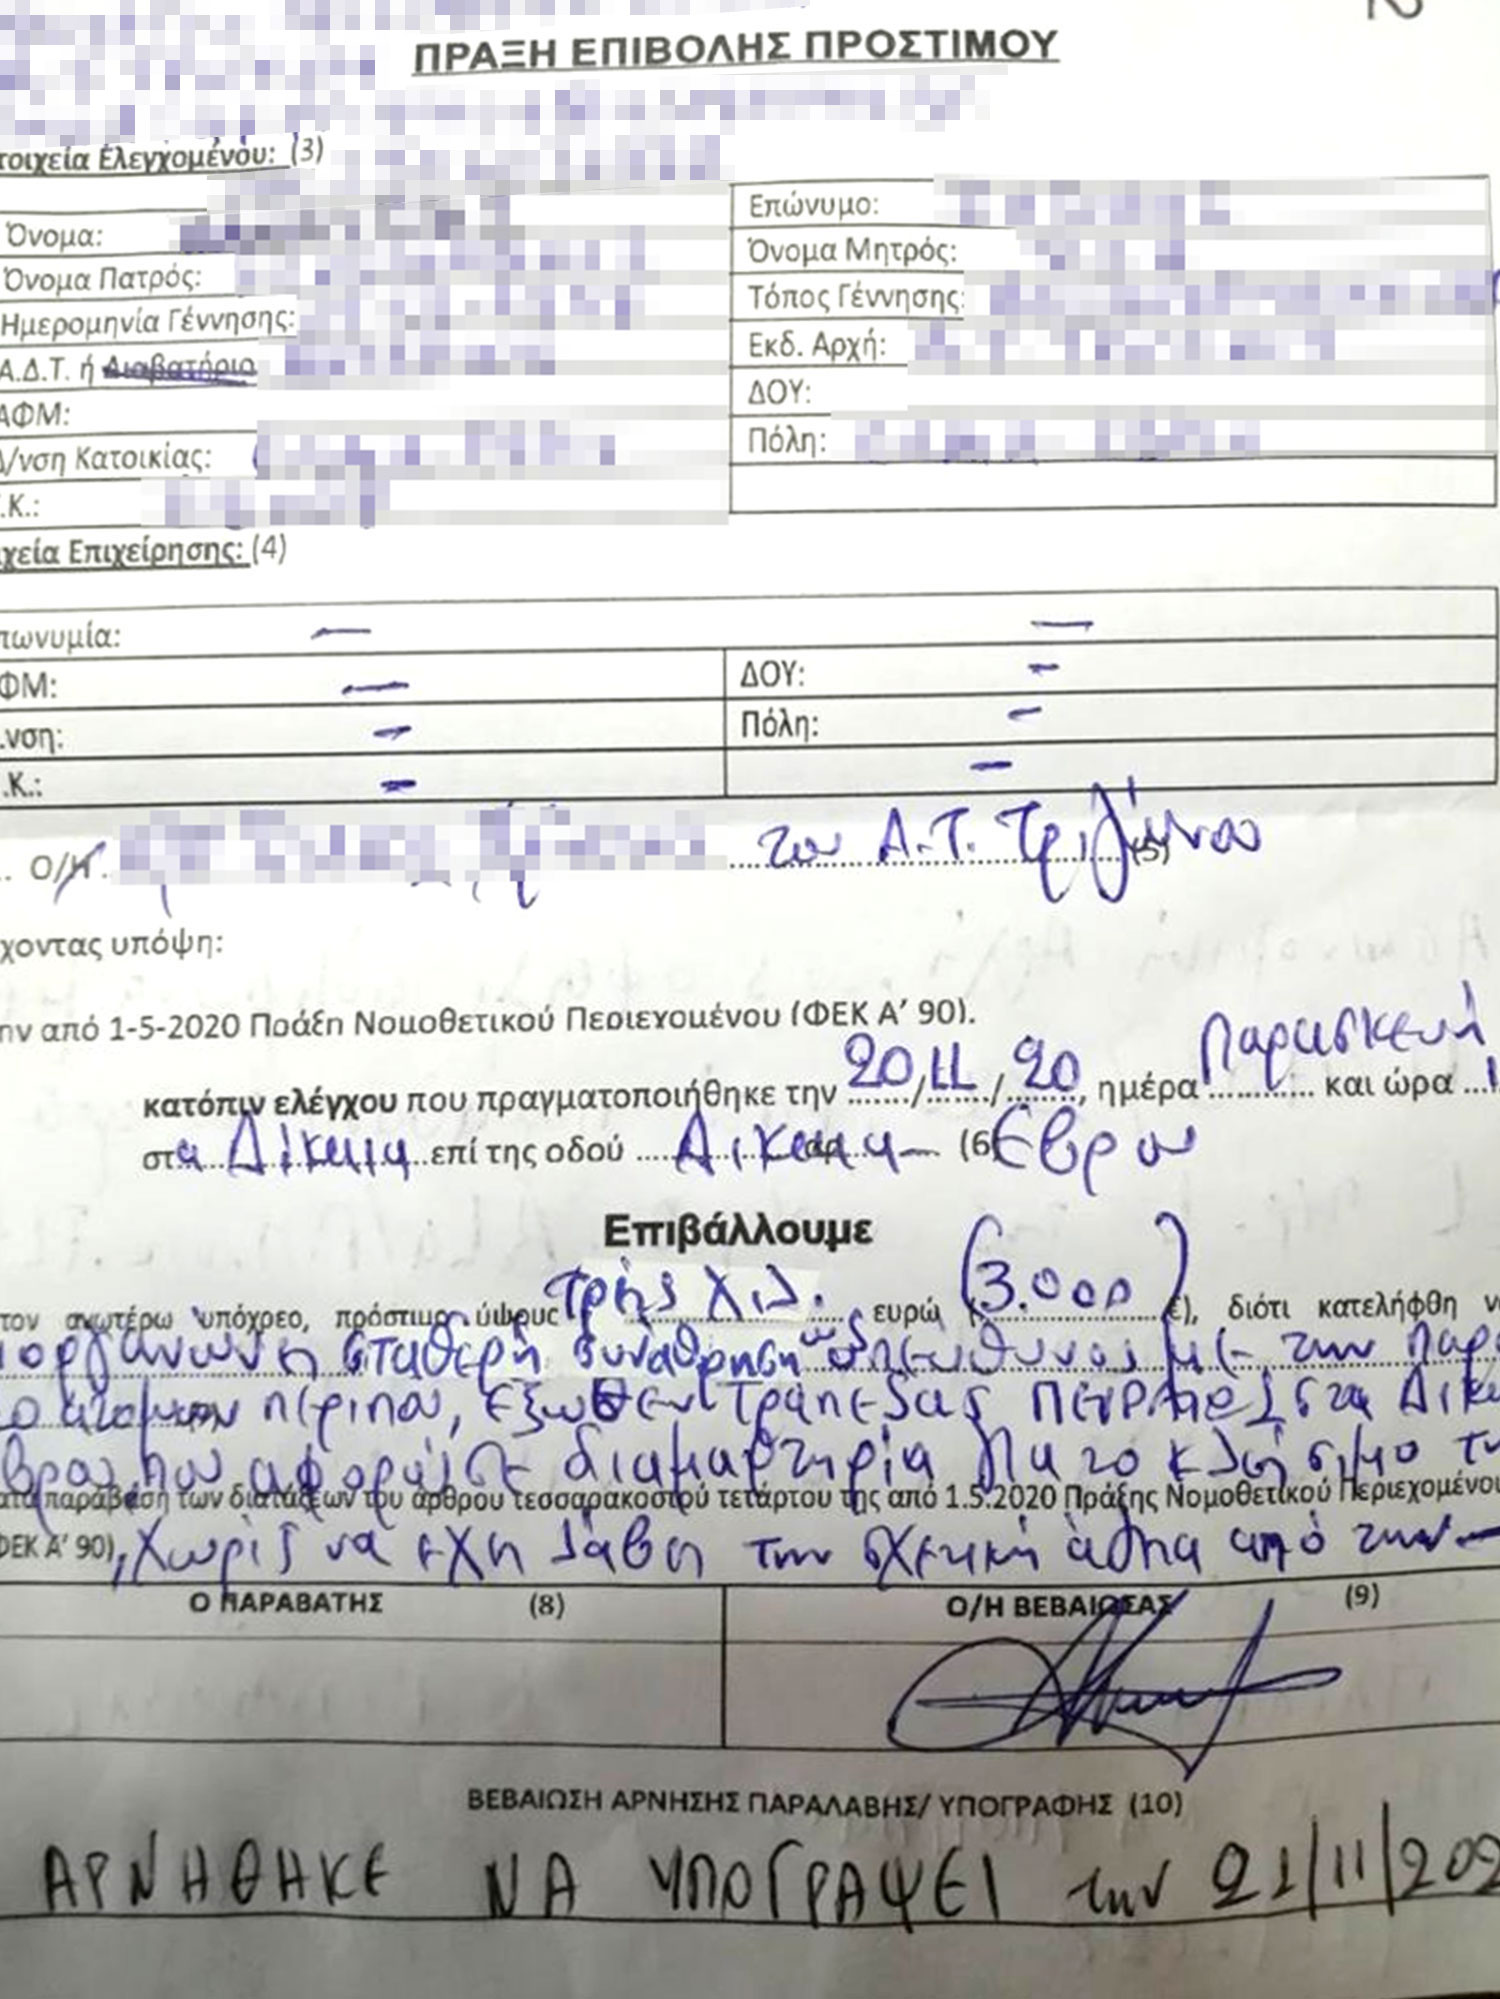 ΠΡΑΞΗ ΕΠΙΒΟΛΗΣ ΠΡΟΣΤΙΜΟΥ
τοιχεία Ελεγχομένου: (3)
Όνομα: Επώνυμο:
Όνομα Πατρός: Όνομα Μητρός:
Ημερομηνία Γέννησης: Τόπος Γέννησης:
Α.Δ.Τ. ή Διαβατήριο Εκδ. Αρχή:
ΑΦΜ: ΔΟΥ:
Δ/νση Κατοικίας: Πόλη:
.Κ.:
χεία Επιχείρησης: (4)
πωνυμία: — —
ΦΜ: — ΔΟΥ: —
.νση: — Πόλη: —
.Κ.: — —
.. Ο/Η. του Α.Τ. Τριγώνου (5)
χοντας υπόψη:
ην από 1-5-2020 Πράξη Νομοθετικού Περιεχομένου (ΦΕΚ Α’ 90).
κατόπιν ελέγχου που πραγματοποιήθηκε την 20/11/20, ημέρα Παρασκευή και ώρα
στα Δίκαια επί της οδού Δίκαια — (6) Έβρου
Επιβάλλουμε
τον ανωτέρω υπόχρεο, πρόστιμο ύψους τρής χιλ. ευρώ (3.000 €), διότι κατελήφθη ν
ιοργάνωνη σταθερή συνάθρηση ως υπεύθυνος με την παρ
ο ατόμων περίπου, έξωθεν Τράπεζας Πειραιώς στα Δίκ
βρου που αφορούσε διαμαρτηρία για το κλήσιμο τη
ατά παράβαση των διατάξεων του άρθρου τεσσαρακοστού τετάρτου της από 1.5.2020 Πράξης Νομοθετικού Περιεχομένου
ΦΕΚ Α’ 90), χωρίς να έχη λάβη την σχετική άδηα από την —
Ο ΠΑΡΑΒΑΤΗΣ (8) Ο/Η ΒΕΒΑΙΩΣΑΣ (9)
ΒΕΒΑΙΩΣΗ ΑΡΝΗΣΗΣ ΠΑΡΑΛΑΒΗΣ/ ΥΠΟΓΡΑΦΗΣ (10)
ΑΡΝΗΘΗΚΕ ΝΑ ΥΠΟΓΡΑΨΕΙ την 21/11/202